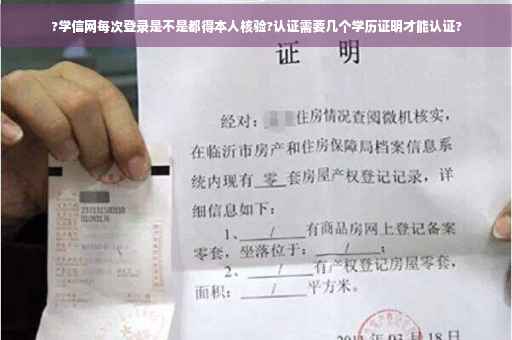 ?学信网每次登录是不是都得本人核验?认证需要几个学历证明才能认证?
证 明
经对: 住房情况查阅微机核实,
在临沂市房产和住房保障局档案信息系
统内现有 零 套房屋产权登记记录,详
细信息如下:
1、 / 有商品房网上登记备案
零套,坐落位于: / ;
2、 / 有产权登记房屋零套,
面积: / 平方米。
03月18日